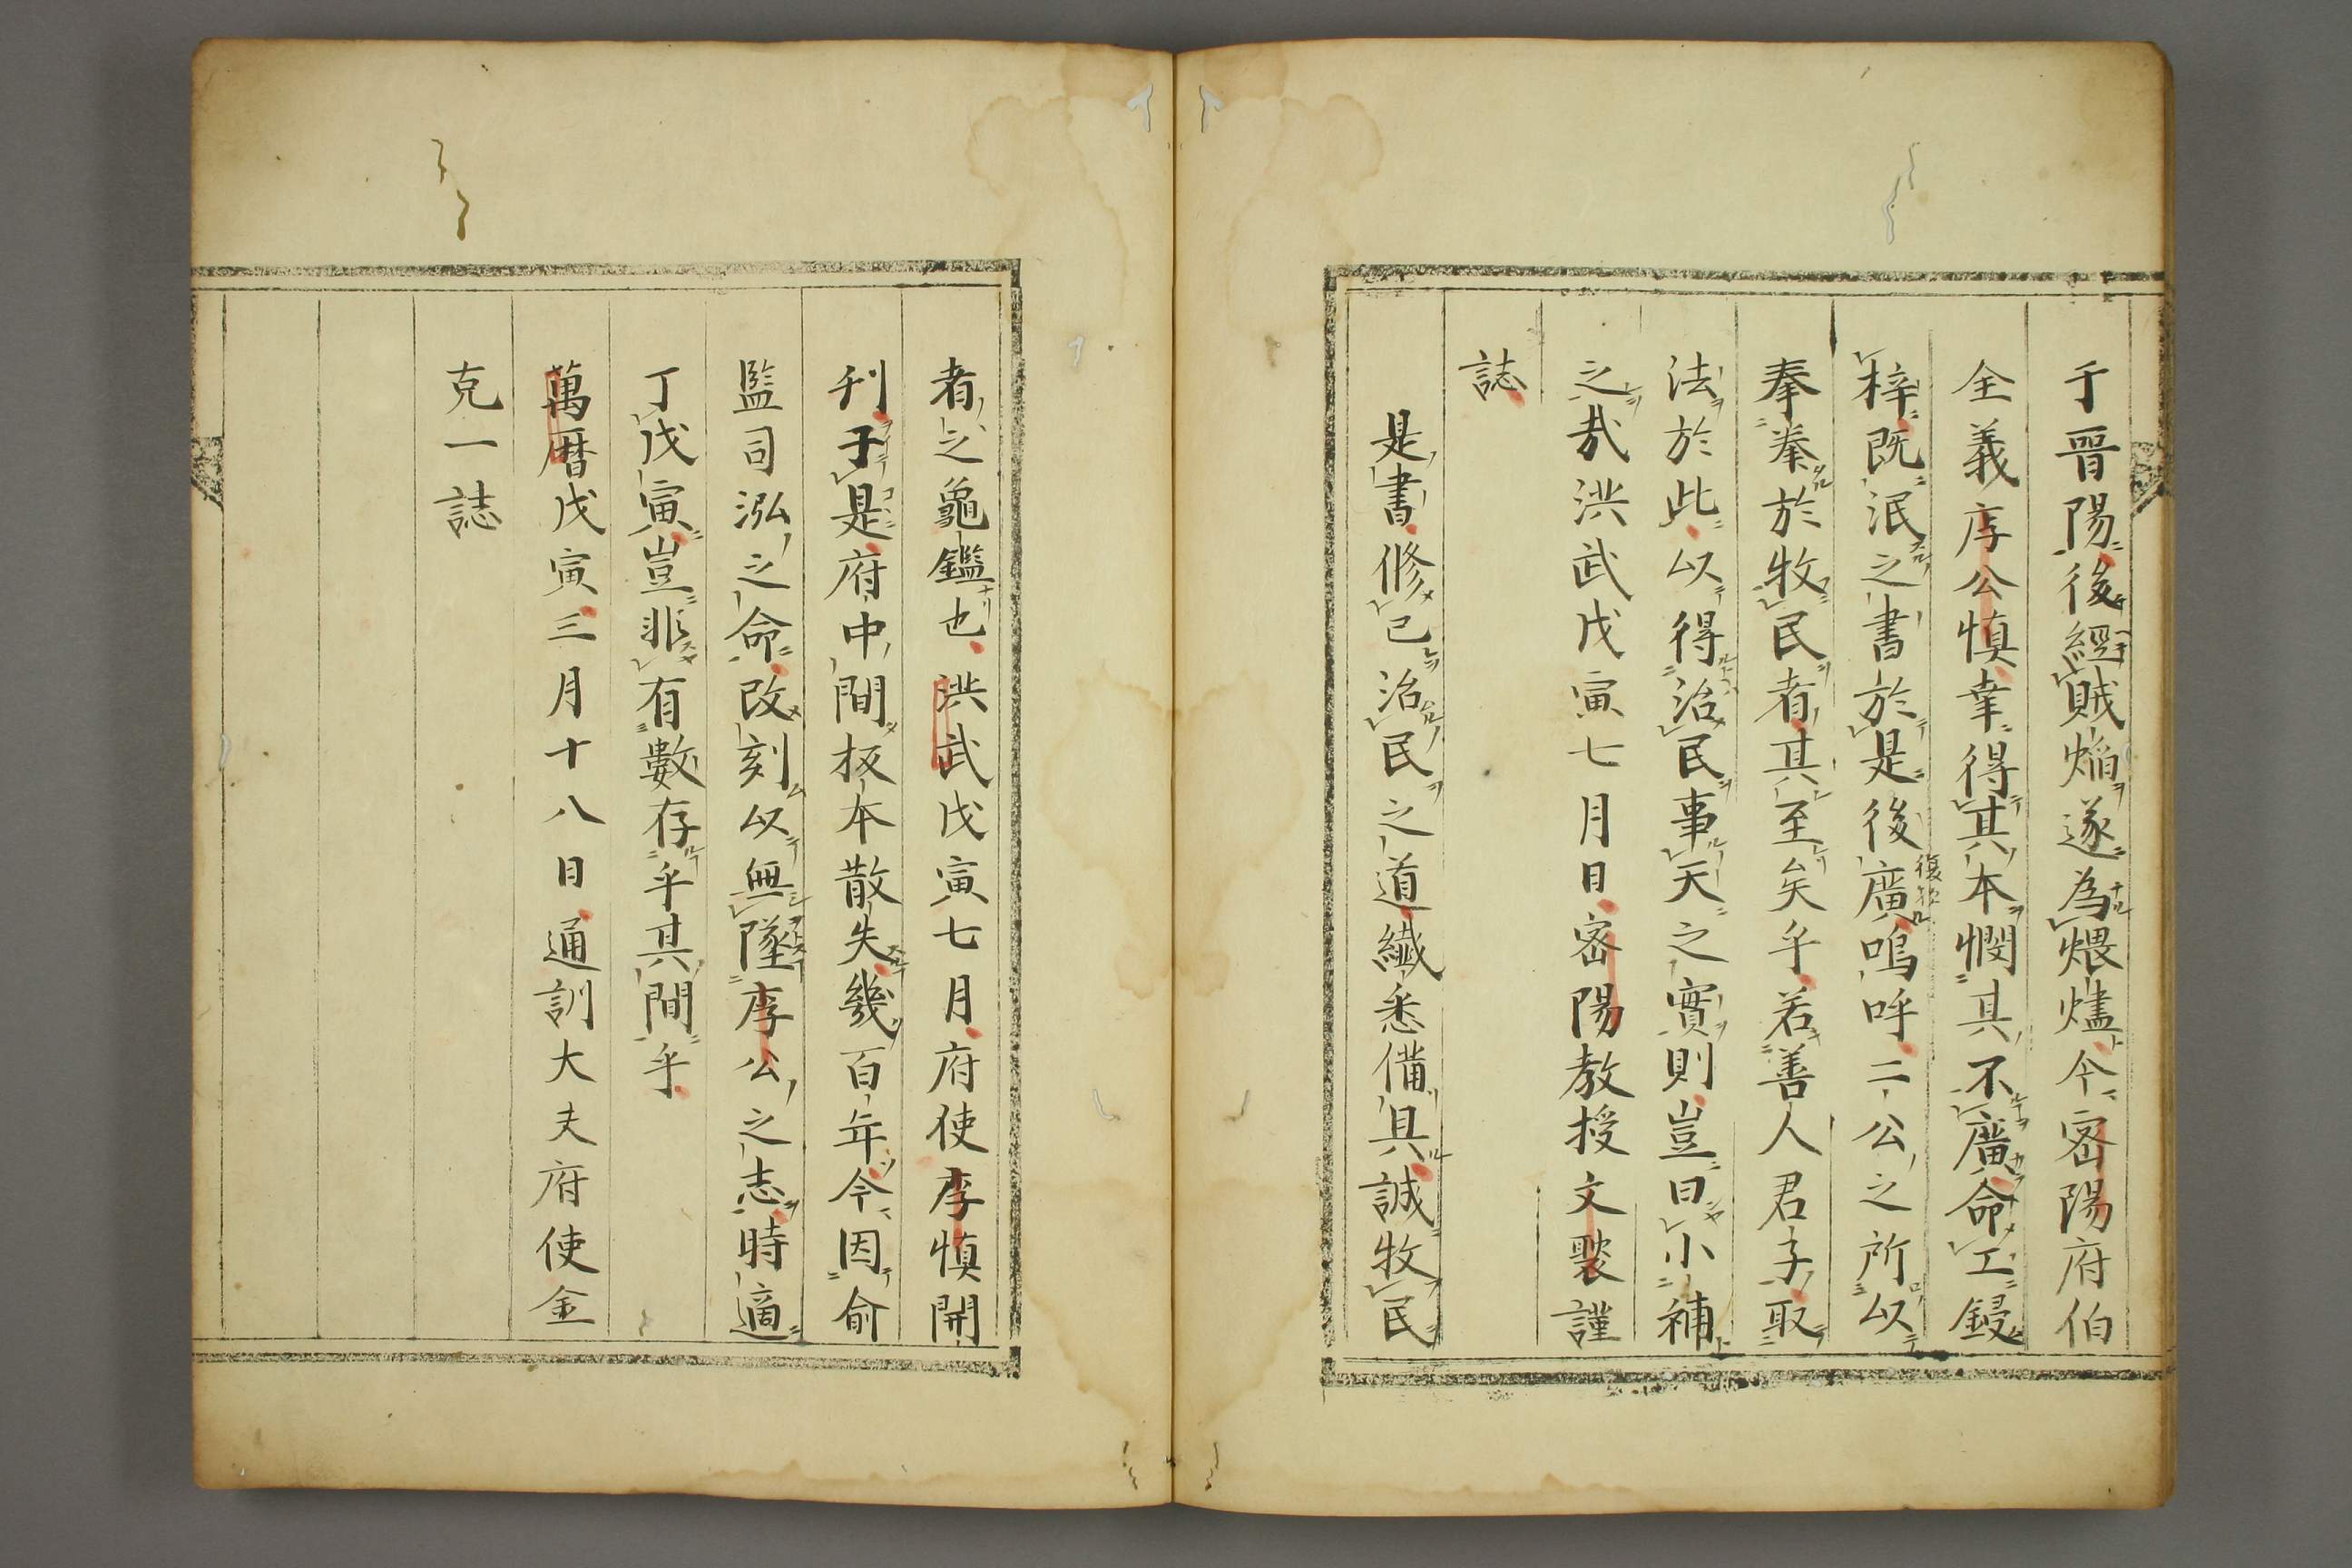 于晋陽後經賊熖遂為煨燼今密陽府伯
全義李公慎幸得其本憫其不廣命工鋟
梓既泯之書於是後廣嗚呼二公之所以
復欤
奉拳於牧民者其至矣乎若善人君子取
法於此以得治民事天之實則豈曰小補
之哉洪武戊寅七月日密陽教授文褧謹
誌
是書修己治民之道纎悉備具誠牧民
者之龜鑑也洪武戊寅七月府使李慎開
刊于是府中間板本散失幾百年今因俞
監司泓之命改刻以無墜李公之志時適
丁戊寅豈非有數存乎其間乎
萬曆戊寅三月十八日通訓大夫府使金
克一誌